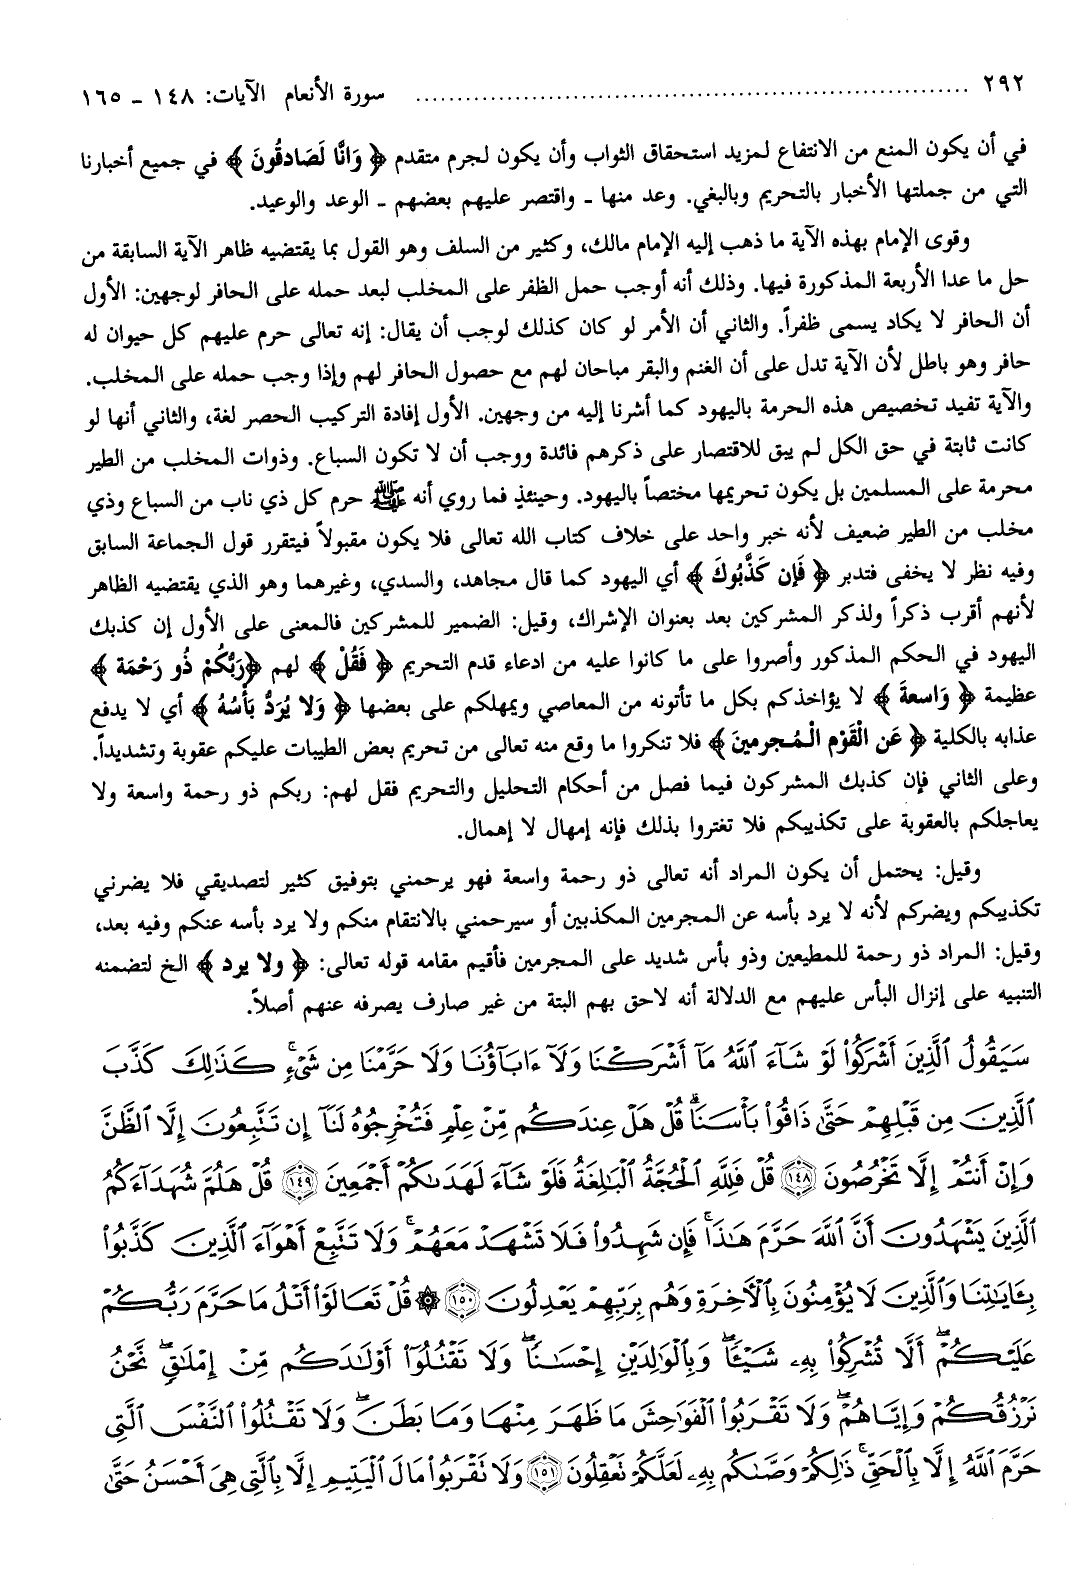 ٢٩٢ ........................................................ سورة الأنعام الآيات: ١٤٨ ـ ١٦٥
في أن يكون المنع من الانتفاع لمزيد استحقاق الثواب وأن يكون لجرم متقدم ﴿ وَانَّا لَصَادقُونَ ﴾ في جميع أخبارنا
التي من جملتها الأخبار بالتحريم وبالبغي. وعد منها ـ واقتصر عليهم بعضهم ـ الوعد والوعيد.
وقوى الإمام بهذه الآية ما ذهب إليه الإمام مالك، وكثير من السلف وهو القول بما يقتضيه ظاهر الآية السابقة من
حل ما عدا الأربعة المذكورة فيها. وذلك أنه أوجب حمل الظفر على المخلب لبعد حمله على الحافر لوجهين: الأول
أن الحافر لا يكاد يسمى ظفراً. والثاني أن الأمر لو كان كذلك لوجب أن يقال: إنه تعالى حرم عليهم كل حيوان له
حافر وهو باطل لأن الآية تدل على أن الغنم والبقر مباحان لهم مع حصول الحافر لهم وإذا وجب حمله على المخلب.
والآية تفيد تخصيص هذه الحرمة باليهود كما أشرنا إليه من وجهين. الأول إفادة التركيب الحصر لغة، والثاني أنها لو
كانت ثابتة في حق الكل لم يبق للاقتصار على ذكرهم فائدة ووجب أن لا تكون السباع. وذوات المخلب من الطير
محرمة على المسلمين بل يكون تحريمها مختصاً باليهود. وحينئذٍ فما روي أنه ﷺ حرم كل ذي ناب من السباع وذي
مخلب من الطير ضعيف لأنه خبر واحد على خلاف كتاب الله تعالى فلا يكون مقبولاً فيتقرر قول الجماعة السابق
وفيه نظر لا يخفى فتدبر ﴿ فَإن كَذَّبُوكَ ﴾ أي اليهود كما قال مجاهد، والسدي، وغيرهما وهو الذي يقتضيه الظاهر
لأنهم أقرب ذكراً ولذكر المشركين بعد بعنوان الإشراك، وقيل: الضمير للمشركين فالمعنى على الأول إن كذبك
اليهود في الحكم المذكور وأصروا على ما كانوا عليه من ادعاء قدم التحريم ﴿ فَقُلْ ﴾ لهم ﴿رَبُّكُمْ ذُو رَحْمَة ﴾
عظيمة ﴿ وَاسعةَ ﴾ لا يؤاخذكم بكل ما تأتونه من المعاصي ويمهلكم على بعضها ﴿ وَلا يُرَدُّ بَأْسُهُ ﴾ أي لا يدفع
عذابه بالكلية ﴿ عَن الْقَوْم الْمُجرمينَ ﴾ فلا تنكروا ما وقع منه تعالى من تحريم بعض الطيبات عليكم عقوبة وتشديداً.
وعلى الثاني فإن كذبك المشركون فيما فصل من أحكام التحليل والتحريم فقل لهم: ربكم ذو رحمة واسعة ولا
يعاجلكم بالعقوبة على تكذيبكم فلا تغتروا بذلك فإنه إمهال لا إهمال.
وقيل: يحتمل أن يكون المراد أنه تعالى ذو رحمة واسعة فهو يرحمني بتوفيق كثير لتصديقي فلا يضرني
تكذيبكم ويضركم لأنه لا يرد بأسه عن المجرمين المكذبين أو سيرحمني بالانتقام منكم ولا يرد بأسه عنكم وفيه بعد،
وقيل: المراد ذو رحمة للمطيعين وذو بأس شديد على المجرمين فأقيم مقامه قوله تعالى: ﴿ ولا يرد ﴾ الخ لتضمنه
التنبيه على إنزال البأس عليهم مع الدلالة أنه لاحق بهم البتة من غير صارف يصرفه عنهم أصلاً.
سَيَقُولُ ٱلَّذِينَ أَشْرَكُواْ لَوْ شَآءَ ٱللَّهُ مَآ أَشْرَكْنَا وَلَآ ءَابَآؤُنَا وَلَا حَرَّمْنَا مِن شَىْءٍ كَذَٰلِكَ كَذَّبَ
ٱلَّذِينَ مِن قَبْلِهِمْ حَتَّىٰ ذَاقُواْ بَأْسَنَا قُلْ هَلْ عِندَكُم مِّنْ عِلْمٍ فَتُخْرِجُوهُ لَنَآ إِن تَتَّبِعُونَ إِلَّا ٱلظَّنَّ
وَإِنْ أَنتُمْ إِلَّا تَخْرُصُونَ ﴿١٤٨﴾ قُلْ فَلِلَّهِ ٱلْحُجَّةُ ٱلْبَٰلِغَةُ فَلَوْ شَآءَ لَهَدَىٰكُمْ أَجْمَعِينَ ﴿١٤٩﴾ قُلْ هَلُمَّ شُهَدَآءَكُمُ
ٱلَّذِينَ يَشْهَدُونَ أَنَّ ٱللَّهَ حَرَّمَ هَٰذَا فَإِن شَهِدُواْ فَلَا تَشْهَدْ مَعَهُمْ وَلَا تَتَّبِعْ أَهْوَآءَ ٱلَّذِينَ كَذَّبُواْ
بِـَٔايَٰتِنَا وَٱلَّذِينَ لَا يُؤْمِنُونَ بِٱلْءَاخِرَةِ وَهُم بِرَبِّهِمْ يَعْدِلُونَ ﴿١٥٠﴾ ۞ قُلْ تَعَالَوْاْ أَتْلُ مَا حَرَّمَ رَبُّكُمْ
عَلَيْكُمْ أَلَّا تُشْرِكُواْ بِهِۦ شَيْـًٔا وَبِٱلْوَٰلِدَيْنِ إِحْسَٰنًا وَلَا تَقْتُلُوٓاْ أَوْلَٰدَكُم مِّنْ إِمْلَٰقٍ نَّحْنُ
نَرْزُقُكُمْ وَإِيَّاهُمْ وَلَا تَقْرَبُواْ ٱلْفَوَٰحِشَ مَا ظَهَرَ مِنْهَا وَمَا بَطَنَ وَلَا تَقْتُلُواْ ٱلنَّفْسَ ٱلَّتِى
حَرَّمَ ٱللَّهُ إِلَّا بِٱلْحَقِّ ذَٰلِكُمْ وَصَّىٰكُم بِهِۦ لَعَلَّكُمْ تَعْقِلُونَ ﴿١٥١﴾ وَلَا تَقْرَبُواْ مَالَ ٱلْيَتِيمِ إِلَّا بِٱلَّتِى هِىَ أَحْسَنُ حَتَّىٰ